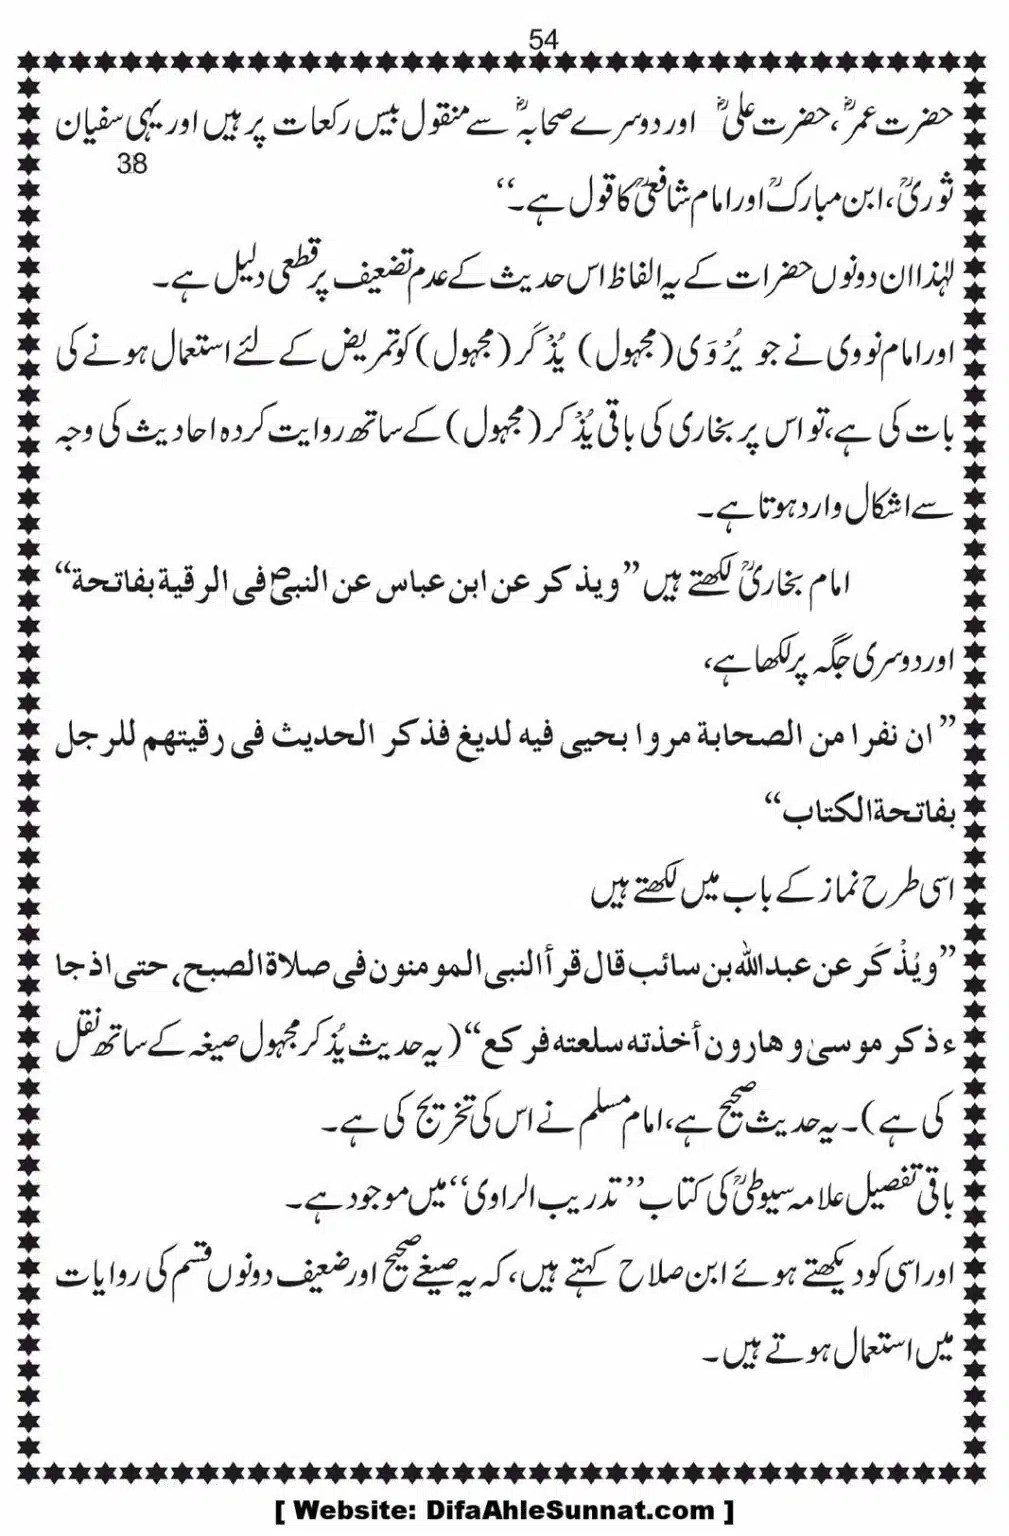 54
حضرت عمرؓ، حضرت علیؓ اور دوسرے صحابہؓ سے منقول بیس رکعات پر ہیں اور یہی سفیان
38
ثوریؒ، ابن مبارکؒ اور امام شافعیؒ کا قول ہے۔‘‘
لہٰذا ان دونوں حضرات کے یہ الفاظ اس حدیث کے عدم تضعیف پر قطعی دلیل ہے۔
اور امام نووی نے جو یُرْوَی (مجہول) یُذْکَر (مجہول) کو تمریض کے لئے استعمال ہونے کی
بات کی ہے، تو اس پر بخاری کی باقی یُذْکر (مجہول) کے ساتھ روایت کردہ احادیث کی وجہ
سے اشکال وارد ہوتا ہے۔
امام بخاریؒ لکھتے ہیں ’’ویذکر عن ابن عباس عن النبیؐ فی الرقیة بفاتحة‘‘
اور دوسری جگہ پر لکھا ہے،
’’ان نفرا من الصحابة مروا بحیی فیه لدیغ فذکر الحدیث فی رقیتهم للرجل
بفاتحة الکتاب‘‘
اسی طرح نماز کے باب میں لکھتے ہیں
’’ویُذْکَر عن عبدالله بن سائب قال قرأ النبی المومنون فی صلاة الصبح، حتی اذ جا
ء ذکر موسیٰ و هارون أخذته سلعته فرکع‘‘ (یہ حدیث یُذکر مجہول صیغہ کے ساتھ نقل
کی ہے)۔ یہ حدیث صحیح ہے، امام مسلم نے اس کی تخریج کی ہے۔
باقی تفصیل علامہ سیوطیؒ کی کتاب ’’تدریب الراوی‘‘ میں موجود ہے۔
اور اسی کو دیکھتے ہوئے ابن صلاح کہتے ہیں، کہ یہ صیغے صحیح اور ضعیف دونوں قسم کی روایات
میں استعمال ہوتے ہیں۔
[ Website: DifaAhleSunnat.com ]